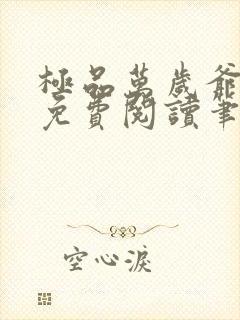 極品萬歲爺
免費閱讀筆
空心淚